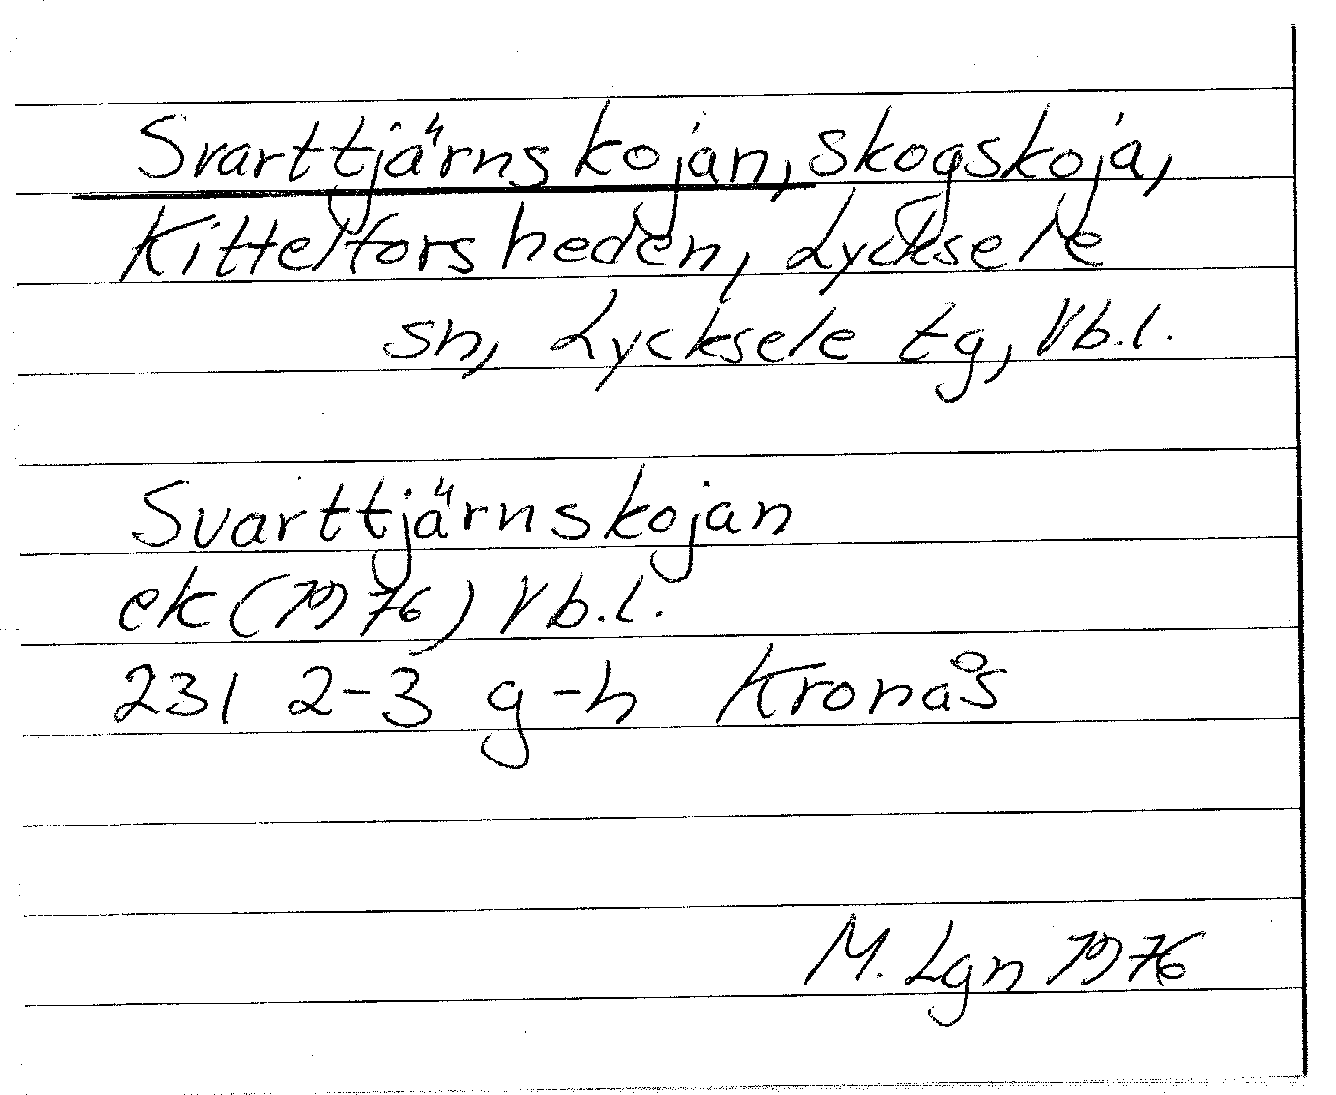 Svarttjärnskojan, skogskoja,
Kittelforsheden, Lycksele
sn, Lycksele tg, Vb.l.
Svarttjärnskojan
ek (1976) Vb.l.
231 2-3 g-h Kronås
M. Lgn 1976